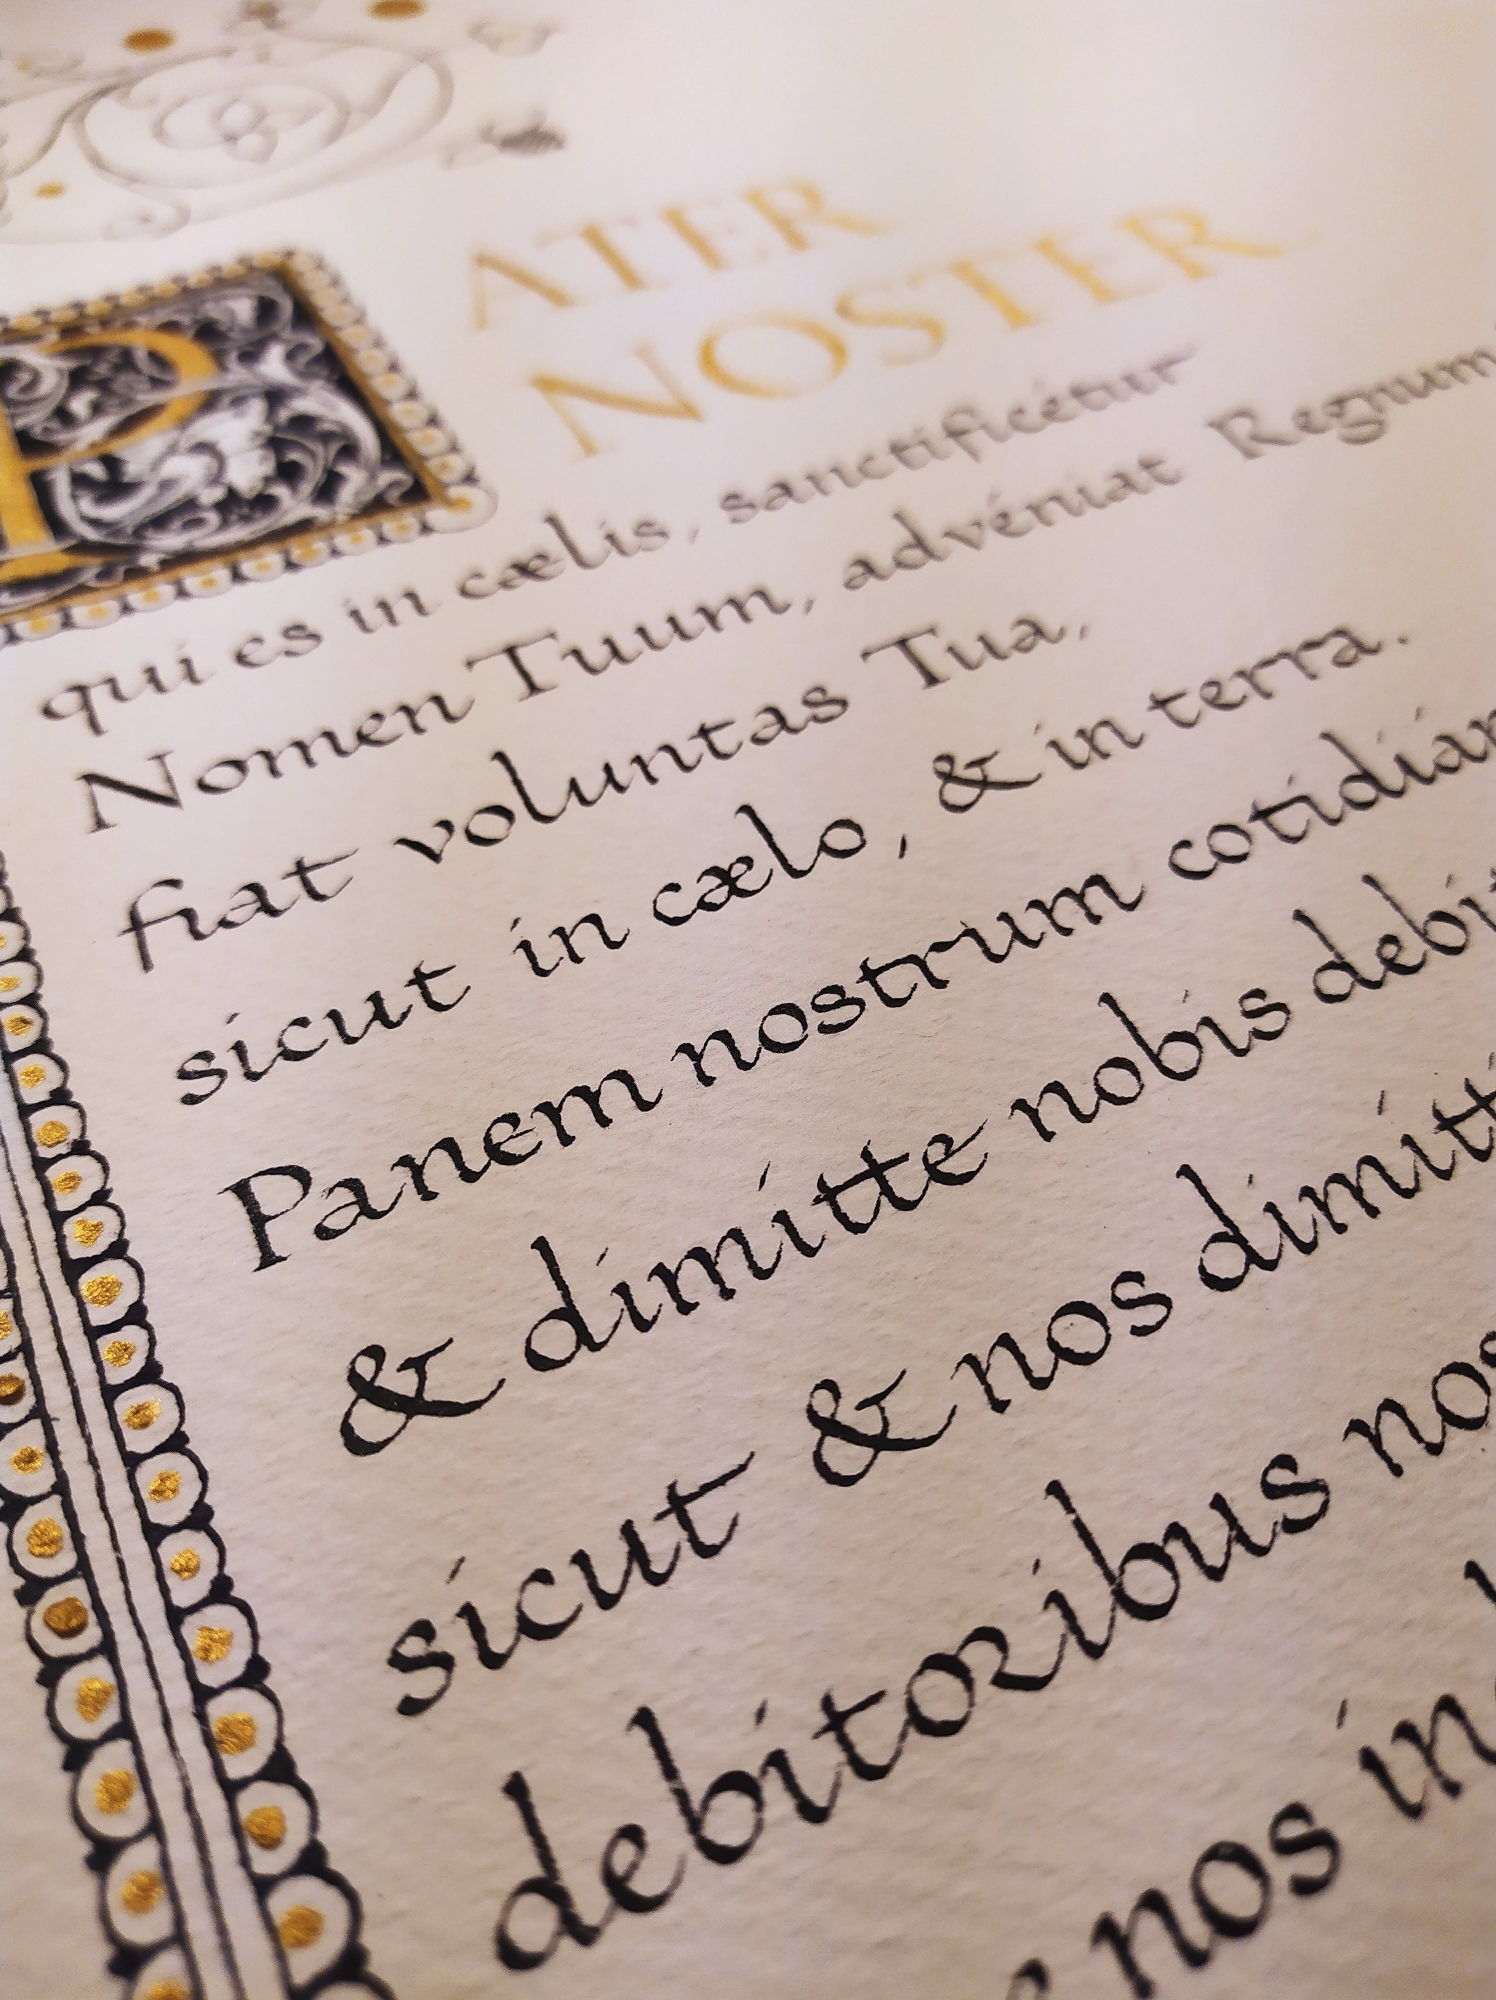 PATER
NOSTER
qui es in cælis, sanctificétur
Nomen Tuum, advéniat Regnum
fiat voluntas Tua,
sicut in cælo, & in terra.
Panem nostrum
& dimitte nobis
sicut & nos
debitoribus
nos in